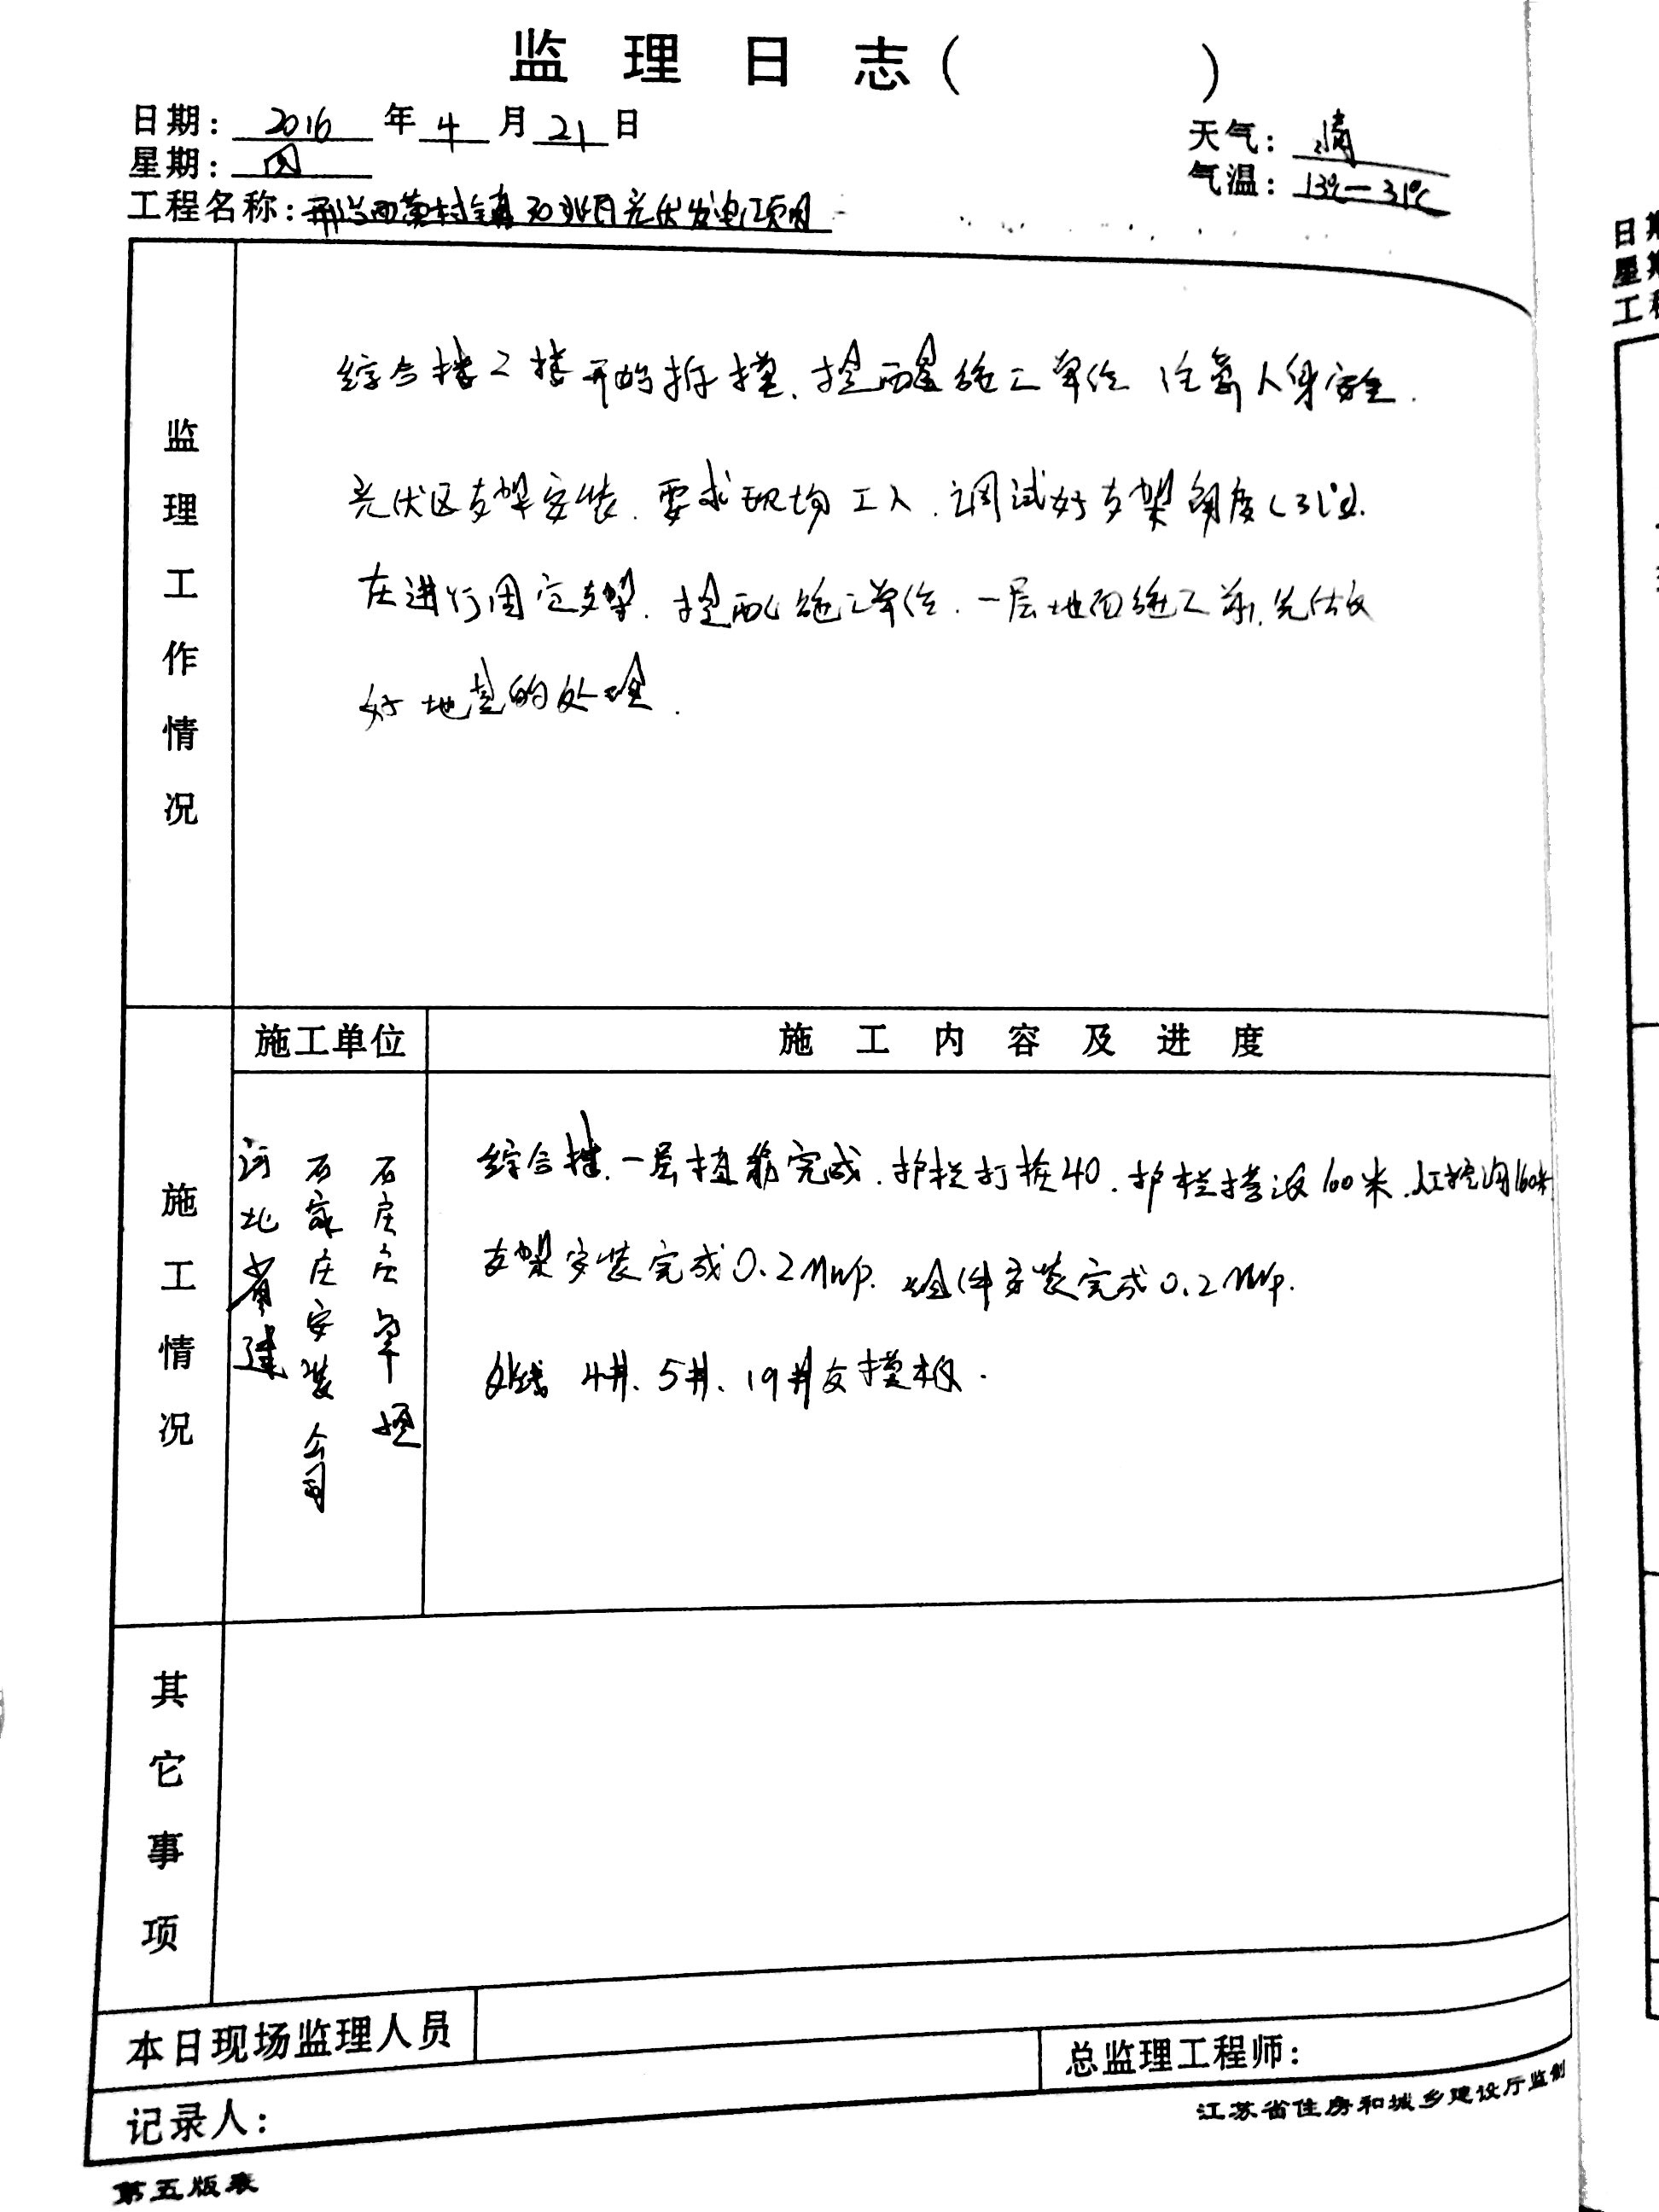 监理日志（　　　）
日期：2016年4月21日
天气：晴
星期：四
气温：13℃—31℃
工程名称：邢台西黄村镇30兆瓦光伏发电项目
监理工作情况
综合楼2楼开始拆模．提醒施工单位注意人身安全．
光伏区支架安装．要求现场工人．调试好支架角度（31°）．
在进行固定支架．提醒施工单位．一层地面施工前，先做
好地基的处理．
施工单位
施工内容及进度
施工情况
河北省建
石家庄安装公司
综合楼．一层植筋完成．护栏打桩40．护栏搭设100米．
支架安装完成0.2MWp．组件安装完成0.2MWp．
外线 4井、5井、19井支模板．
其它事项
本日现场监理人员
总监理工程师：
记录人：
江苏省住房和城乡建设厅监制
第五版表
日期
星期
工程